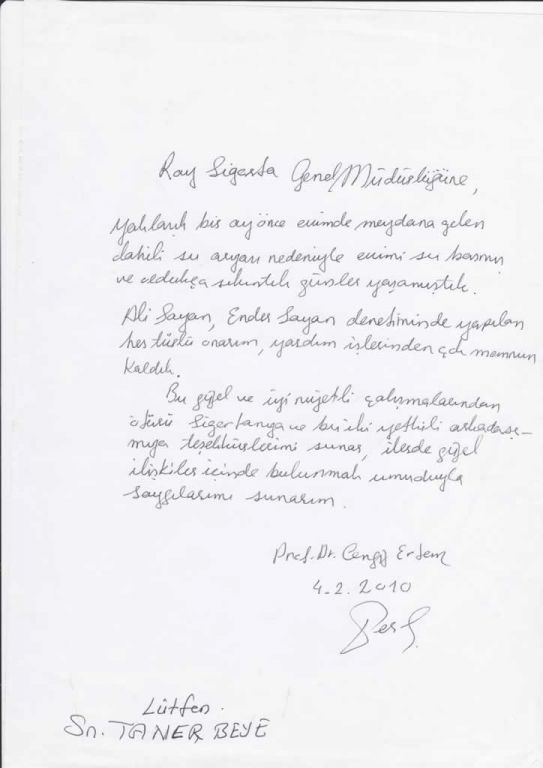 Ray Sigorta Genel Müdürlüğüne,
Yaklaşık bir ay önce evimde meydana gelen
dahili su arızası nedeniyle evimi su basmış
ve oldukça sıkıntılı günler yaşamıştık.
Ali Sayan, Ender Sayan denetiminde yapılan
her türlü onarım, yardım işlerinden çok memnun
kaldık.
Bu güzel ve iyi niyetli çalışmalarından
ötürü Sigortanıza ve bu iki yetkili arkadaşı-
mıza teşekkürlerimi sunar, ilerde güzel
ilişkiler içinde bulunmak umuduyla
saygılarımı sunarım.
Prof. Dr. Cengiz Ertem
4.2.2010
Lütfen.
Sn. TANER BEYE